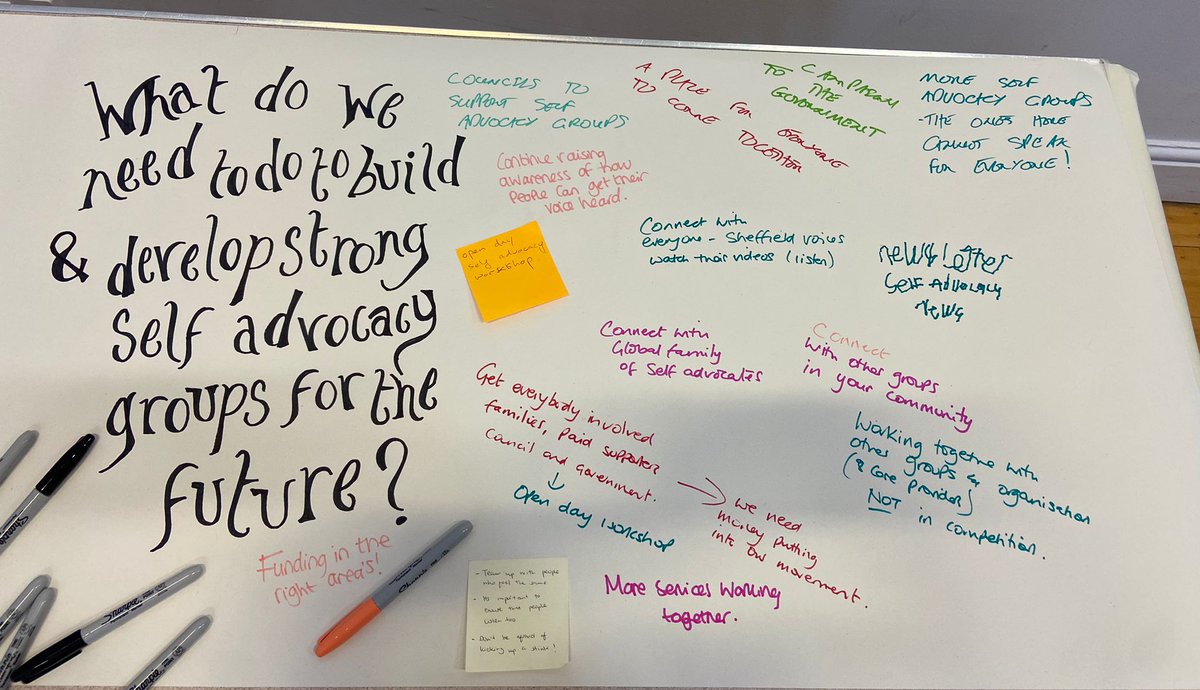 What do we
need to do to build
& develop strong
self advocacy
groups for the
future?
COUNCILS TO
SUPPORT SELF
ADVOCACY GROUPS
A PLACE FOR EVERYONE
TO COME TOGETHER
CAMPAIGN
TO THE
GOVERNMENT
MORE SELF
ADVOCACY GROUPS
- THE ONES HERE
CANNOT SPEAK
FOR EVERYONE!
Continue raising
awareness of how
people can get their
voice heard.
open day
self advocacy
workshop
Connect with
everyone - Sheffield voices
watch their videos (listen)
newsletter
Self Advocacy
news
Connect with
Global family
of Self advocates
Connect
with other groups
in your community
Get everybody involved
families, paid supporters
council and government.
Open day workshop
we need
money putting
into our movement.
Working together with
other groups & organisation
(& Care Providers)
NOT in competition.
Funding in the
right area's!
More services working
together.
- Team up with people
who feel the same
- It's important to
those people
- Don't be afraid of
kicking up a stink!
Sharpie
Sharpie
Sharpie